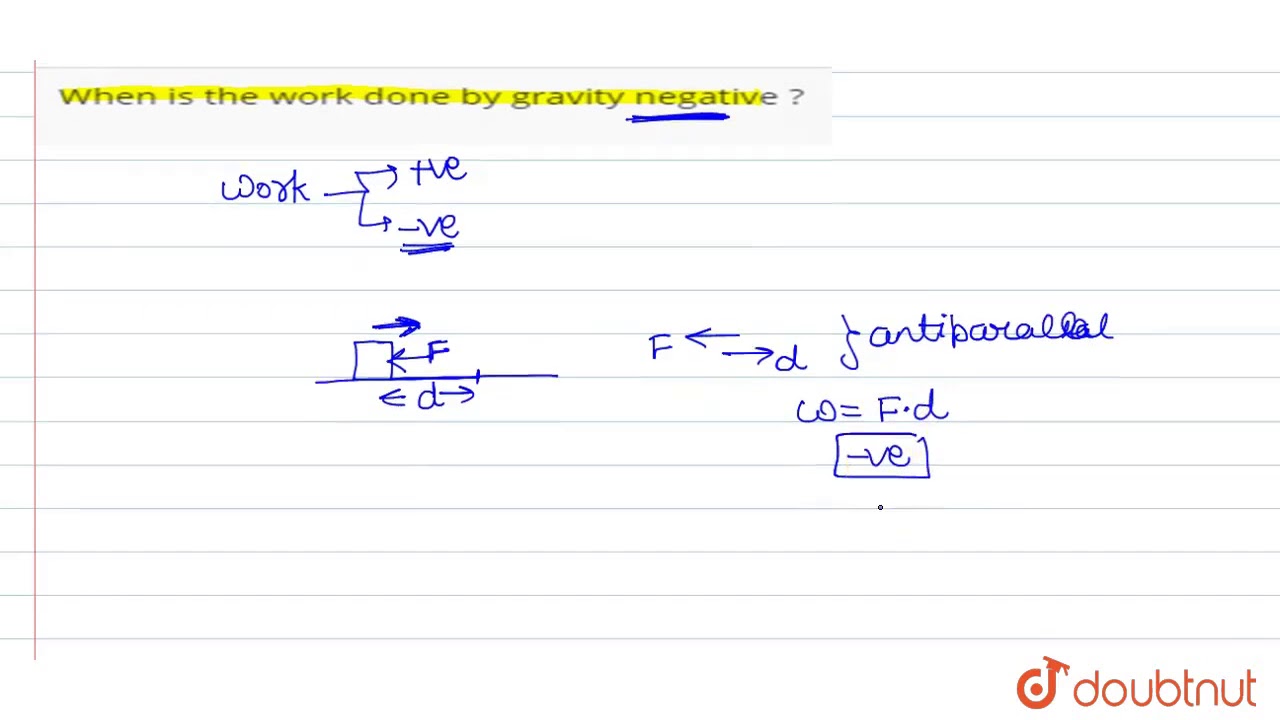 When is the work done by gravity negative ?
Work
+ve
-ve
F
d
F
d
} antiparallel
W = F·d
-ve
doubtnut